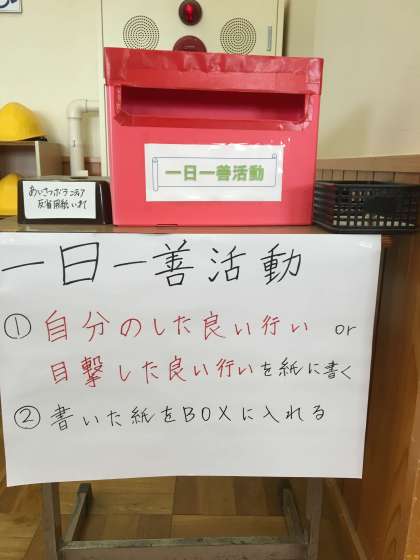 一日一善活動
あいさつボランティア
反省用紙いれ
一日一善活動
① 自分のした良い行い or
目撃した良い行いを紙に書く
② 書いた紙をBOXに入れる